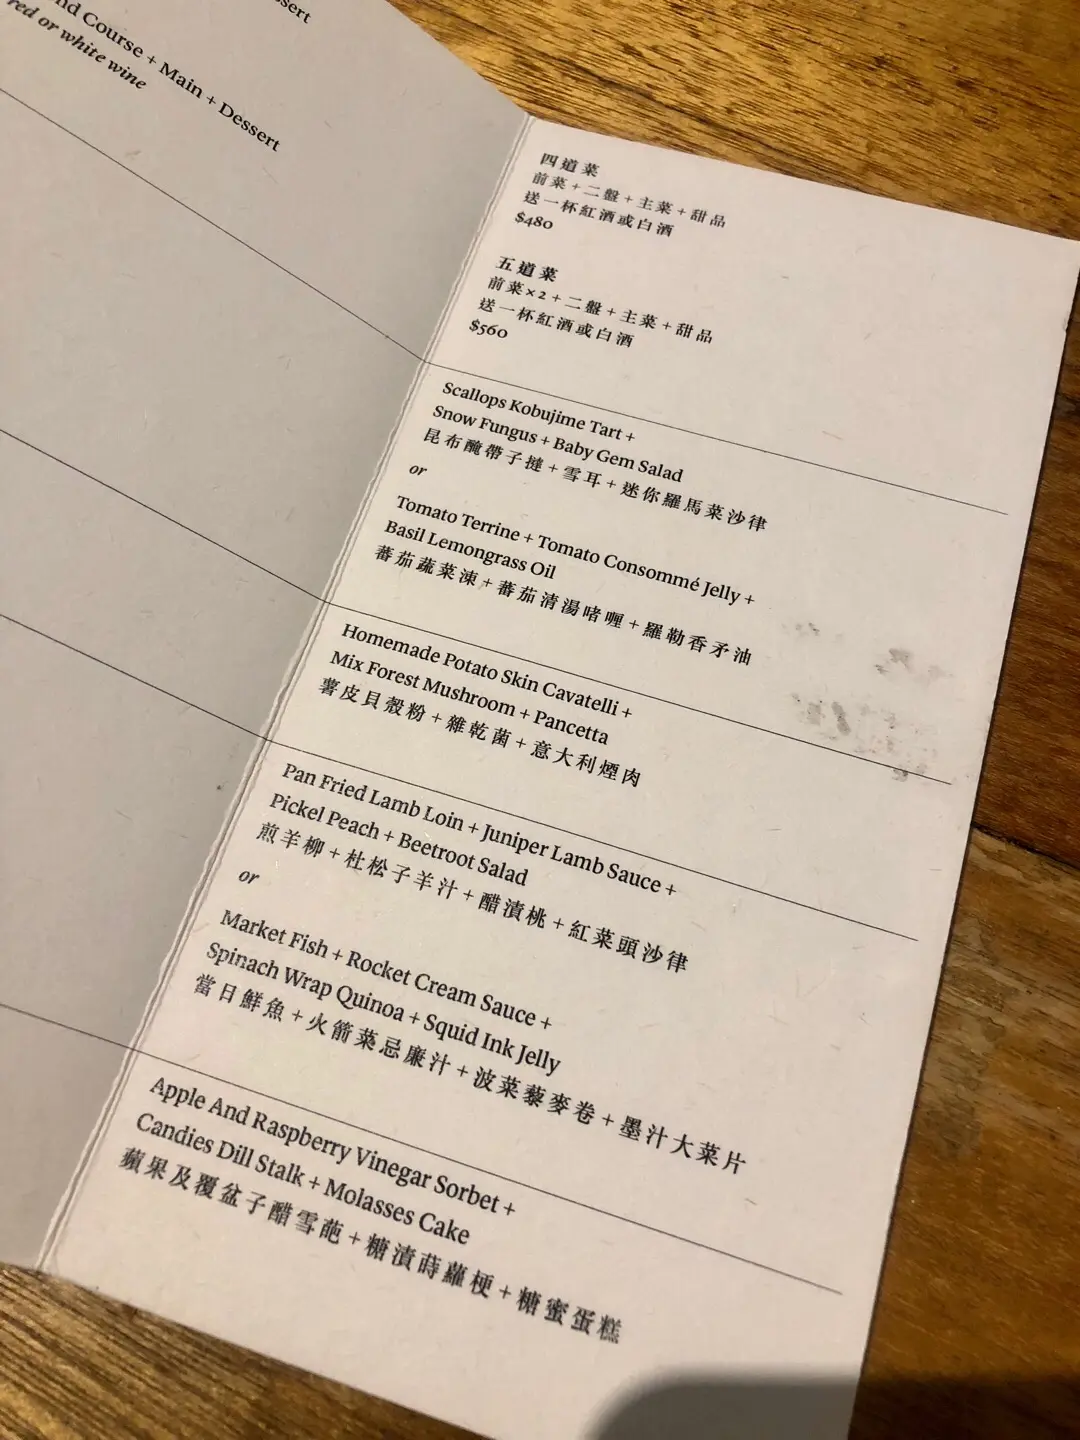 ssert
nd Course + Main + Dessert
red or white wine
四道菜
前菜+二盤+主菜+甜品
送一杯紅酒或白酒
$480
五道菜
前菜×2+二盤+主菜+甜品
送一杯紅酒或白酒
$560
Scallops Kobujime Tart +
Snow Fungus + Baby Gem Salad
昆布醃帶子撻+雪耳+迷你羅馬菜沙律
or
Tomato Terrine + Tomato Consommé Jelly +
Basil Lemongrass Oil
蕃茄蔬菜凍+蕃茄清湯啫喱+羅勒香矛油
Homemade Potato Skin Cavatelli +
Mix Forest Mushroom + Pancetta
薯皮貝殼粉+雜乾菌+意大利煙肉
Pan Fried Lamb Loin + Juniper Lamb Sauce +
Pickel Peach + Beetroot Salad
煎羊柳+杜松子羊汁+醋漬桃+紅菜頭沙律
or
Market Fish + Rocket Cream Sauce +
Spinach Wrap Quinoa + Squid Ink Jelly
當日鮮魚+火箭菜忌廉汁+波菜藜麥卷+墨汁大菜片
Apple And Raspberry Vinegar Sorbet +
Candies Dill Stalk + Molasses Cake
蘋果及覆盆子醋雪葩+糖漬蒔蘿梗+糖蜜蛋糕